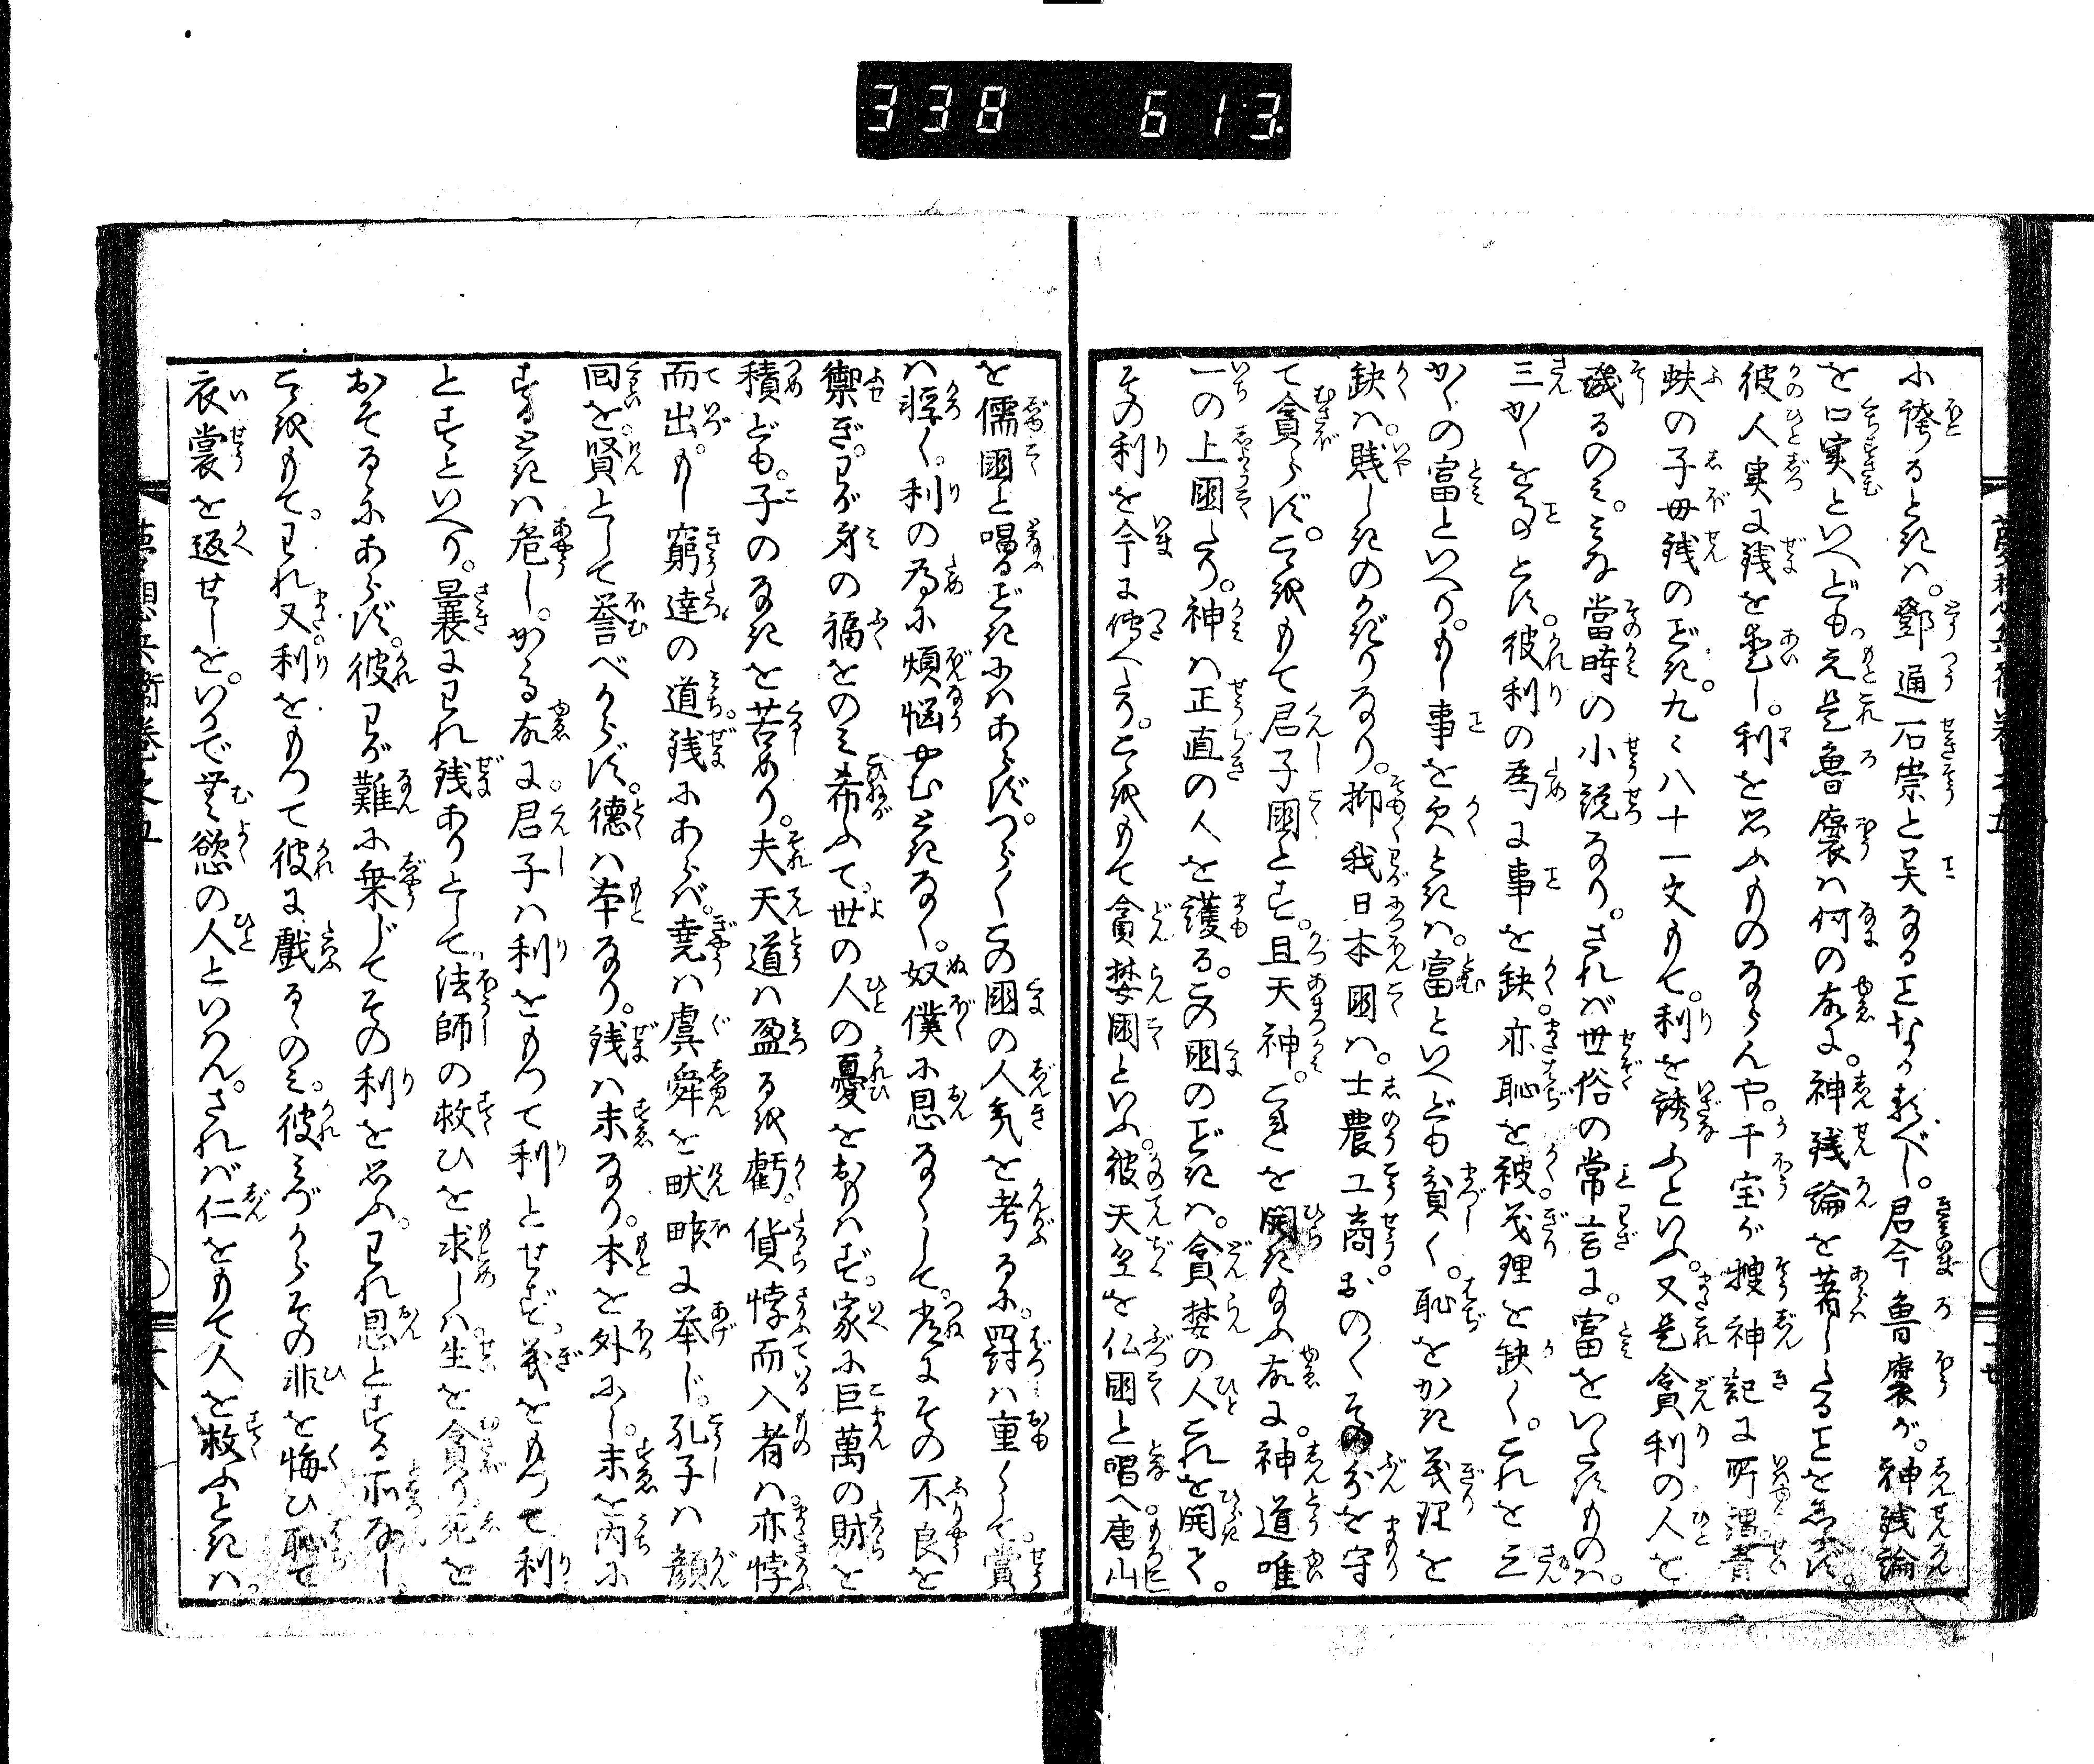 338 613
に誇るときは。鄧通石崇と異なることなかるべし。君今魯褒が。神銭論
を口実といへども。元是魯褒は何の故に。神銭論を著したることをしらず。
彼人実に銭を愛し。利を思ふものならんや。干宝が捜神記に所謂青
蚨の子母銭のごとき。九々八十一文もて。利を誘ふといふ。又是貪利の人を
譏るのみ。みな當時の小説なり。されば世俗の常言に。富をいたすものは。
三かくをすとす。彼利の為に事を缺。亦恥を被。義理を缺く。これを三
かくの富といへり。もし事を欠ときは。富といへども貧く。恥をかき義理を
缺は。賤しきのかぎりなり。抑我日本國は。士農工商。おのくその分を守
て貪らず。こゝをもて君子國とす。且天神。これを開き給ふ故に。神道唯
一の上国たり。神は正直の人を護る。この国のごときは。貪婪の人これを開く。
その利を今に傳へたり。こゝをもて貪婪国といふ。彼天竺を仏国と唱へ唐山
を儒國と唱るごときにはあらず。つらくこの國の人気を考るに。罰は重くして。賞
は輕く。利の為に煩悩やむときなく。奴僕に恩なくして。常にその不良を
禦ぎ。わが身の福をのみ希ふて。世の人の憂をおもはず。家に巨萬の財を
積ども。子のなきを苦めり。夫天道は盈るを虧。貨悖而入者は亦悖
而出。もし窮達の道。銭にあらば。堯は虞舜を畎畝に挙じ。孔子は顔
回を。賢として誉べからず。徳は本なり。銭は末なり。本を外にし。末を内に
するときは危し。かゝる故に。君子は利をもつて利とせず。義をもつて利
とすといへり。曩にわれ銭ありとして。法師の救ひを求しは。生を貪り死を
おそるゝにあらず。彼わが難に乗じてその利を思ふ。われ恩とする所なし。
こゝをもて。われ又利をもつて彼に戯るゝのみ。彼みづからその非を悔ひ恥て
衣裳を返せしを。いかで無慾の人といはん。されば仁をもて人を救ふときは。
夢想兵衛巻之五